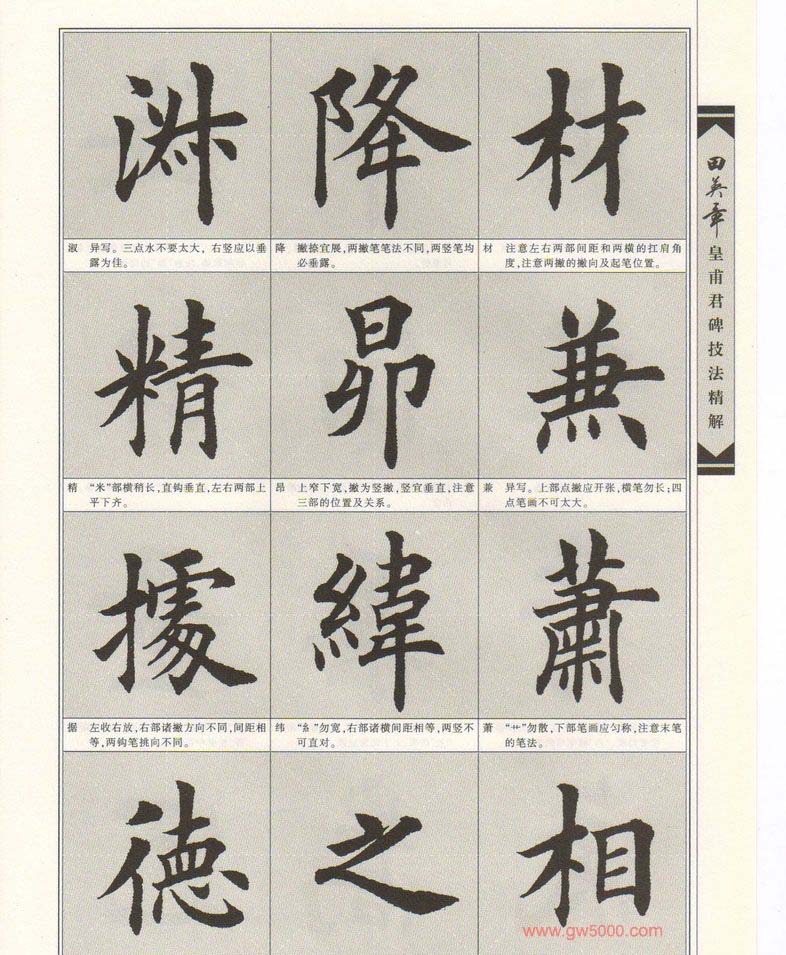 田英章 皇甫君碑技法精解
材
材 注意左右两部间距和两横的扛肩角
度,注意两撇的撇向及起笔位置。
兼
兼 异写。上部点撇应开张,横笔勿长;四
点笔画不可太大。
蕭
萧 “艹”勿散,下部笔画应匀称,注意末笔
的笔法。
相
降
降 撇捺宜展,两撇笔笔法不同,两竖笔均
必垂露。
昂
昂 上窄下宽,撇为竖撇,竖宜垂直,注意
三部的位置及关系。
緯
纬 “糹”勿宽,右部诸横间距相等,两竖不
可直对。
之
淑
淑 异写。三点水不要太大,右竖应以垂
露为佳。
精
精 “米”部横稍长,直钩垂直,左右两部上
平下齐。
據
据 左收右放,右部诸撇方向不同,间距相
等,两钩笔挑向不同。
德
www.gw5000.com